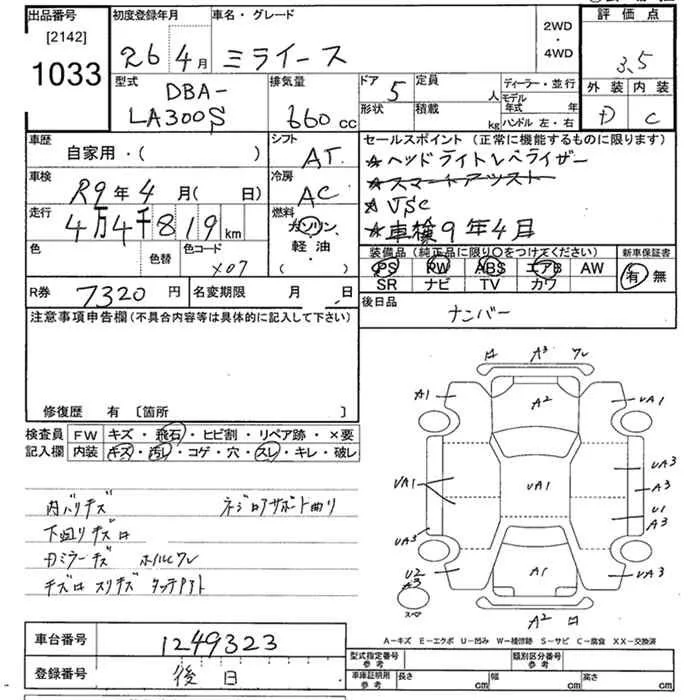 出品番号
[2142]
1033
初度登録年月
26年 4月
車名・グレード
ミライース
2WD
・
4WD
評価点
3.5
外装 内装
D C
型式
DBA-
LA300S
排気量
660cc
ドア 5
定員 人
形状
積載 kg
ディーラー・並行
モデル年式 年
ハンドル 左・右
車歴
自家用・( )
シフト
AT
セールスポイント (正常に機能するものに限ります)
★ヘッドライトレベライザー
★スマートアシスト
★VSC
★車検9年4月
車検
R9年 4月( 日)
冷房
AC
走行
4万4千819km
燃料
ガソリン、
軽油・
( )
色
色替
色コード
X07
装備品 (純正品に限り○をつけてください)
PS PW ABS エアB AW
SR ナビ TV カワ
新車保証書
有 無
R券 7320円
名変期限 月 日
後日品
ナンバー
注意事項申告欄 (不具合内容等は具体的に記入して下さい)
修復歴 有 〔箇所 〕
検査員
記入欄
FW キズ・飛石・ヒビ割・リペア跡・×要
内装 キズ・汚レ・コゲ・穴・スレ・キレ・破レ
内バリキズ
下廻りキズ
キズ
A3
A1
A2
UA1
UA1
UA1
UA3
A3
U1
A3
UA3
U2
A3
A1
UA3
スペア
A2
A-キズ E-エクボ U-凹み W-補修跡 S-サビ C-腐食 XX-交換済
車台番号 1249323
登録番号 後日
型式指定番号
参考
類別区分番号
参考
車庫証明用
参考
長さ cm
幅 cm
高さ cm